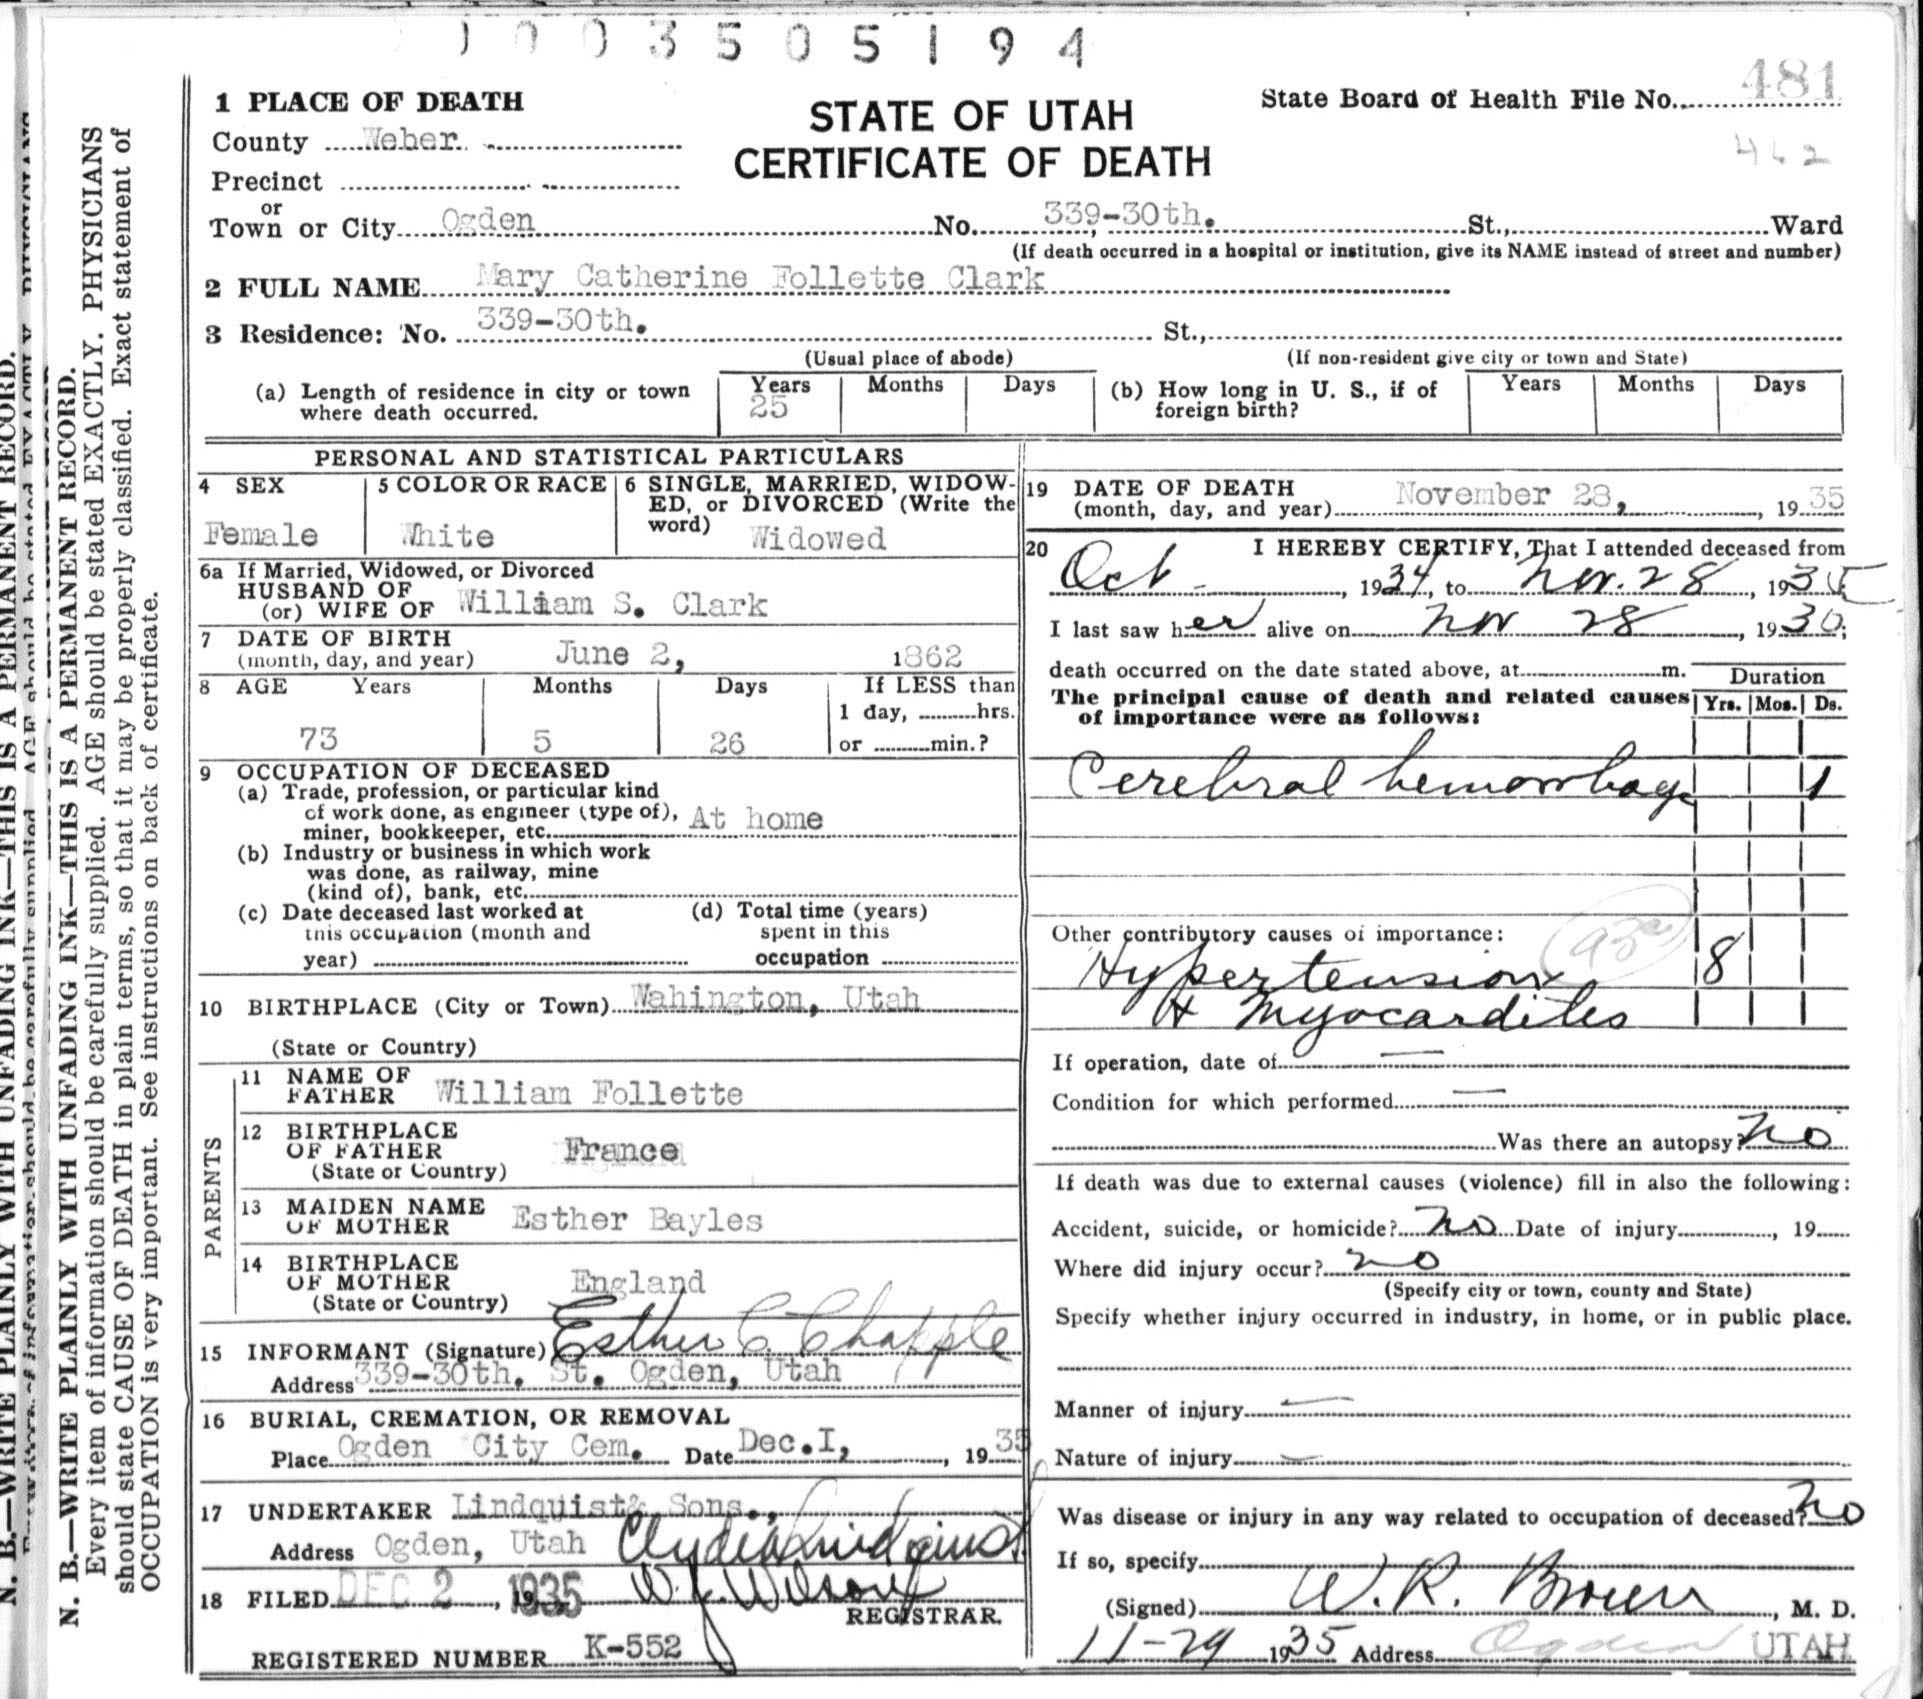 1003505194
1 PLACE OF DEATH
STATE OF UTAH
CERTIFICATE OF DEATH
State Board of Health File No. 481
462
County Weber
Precinct
or
Town or City Ogden No. 339-30th. St., Ward
(If death occurred in a hospital or institution, give its NAME instead of street and number)
2 FULL NAME Mary Catherine Follette Clark
3 Residence: No. 339-30th. St.,
(Usual place of abode) (If non-resident give city or town and State)
(a) Length of residence in city or town where death occurred. Years 25 Months Days
(b) How long in U. S., if of foreign birth? Years Months Days
PERSONAL AND STATISTICAL PARTICULARS
4 SEX Female
5 COLOR OR RACE White
6 SINGLE, MARRIED, WIDOW-
ED, or DIVORCED (Write the
word) Widowed
6a If Married, Widowed, or Divorced
HUSBAND OF
(or) WIFE OF William S. Clark
7 DATE OF BIRTH
(month, day, and year) June 2, 1862
8 AGE Years Months Days If LESS than
1 day, hrs.
73 5 26 or min.?
9 OCCUPATION OF DECEASED
(a) Trade, profession, or particular kind
of work done, as engineer (type of),
miner, bookkeeper, etc. At home
(b) Industry or business in which work
was done, as railway, mine
(kind of), bank, etc.
(c) Date deceased last worked at
this occupation (month and
year)
(d) Total time (years)
spent in this
occupation
10 BIRTHPLACE (City or Town) Wahington, Utah
(State or Country)
PARENTS
11 NAME OF
FATHER William Follette
12 BIRTHPLACE
OF FATHER France
(State or Country)
13 MAIDEN NAME
OF MOTHER Esther Bayles
14 BIRTHPLACE
OF MOTHER England
(State or Country)
15 INFORMANT (Signature) Esther C. Chapple
Address 339-30th. St. Ogden, Utah
16 BURIAL, CREMATION, OR REMOVAL
Place Ogden City Cem. Date Dec.I, 1935
17 UNDERTAKER Lindquist& Sons.,
Address Ogden, Utah Clyde Lindquist
18 FILED DEC 2, 1935 W. J. Wilson
REGISTRAR.
REGISTERED NUMBER K-552
19 DATE OF DEATH
(month, day, and year) November 28, 1935
20 I HEREBY CERTIFY, That I attended deceased from
Oct - , 1934, to Nov. 28, 1935
I last saw her alive on Nov 28, 1930;
death occurred on the date stated above, at m.
The principal cause of death and related causes
of importance were as follows:
Duration
Yrs. Mos. Ds.
Cerebral hemorrhage 1
Other contributory causes of importance:
Hypertension 8
H Myocardites
If operation, date of —
Condition for which performed —
Was there an autopsy? no
If death was due to external causes (violence) fill in also the following:
Accident, suicide, or homicide? no Date of injury , 19
Where did injury occur? no
(Specify city or town, county and State)
Specify whether injury occurred in industry, in home, or in public place.
Manner of injury —
Nature of injury —
Was disease or injury in any way related to occupation of deceased? no
If so, specify
(Signed) W. R. Brown, M. D.
11-29 1935 Address Ogden UTAH
N. B.—WRITE PLAINLY WITH UNFADING INK—THIS IS A PERMANENT RECORD.
Every item of information should be carefully supplied. AGE should be stated EXACTLY. PHYSICIANS
should state CAUSE OF DEATH in plain terms, so that it may be properly classified. Exact statement of
OCCUPATION is very important. See instructions on back of certificate.
N. B.—WRITE PLAINLY WITH UNFADING INK—THIS IS A PERMANENT RECORD.